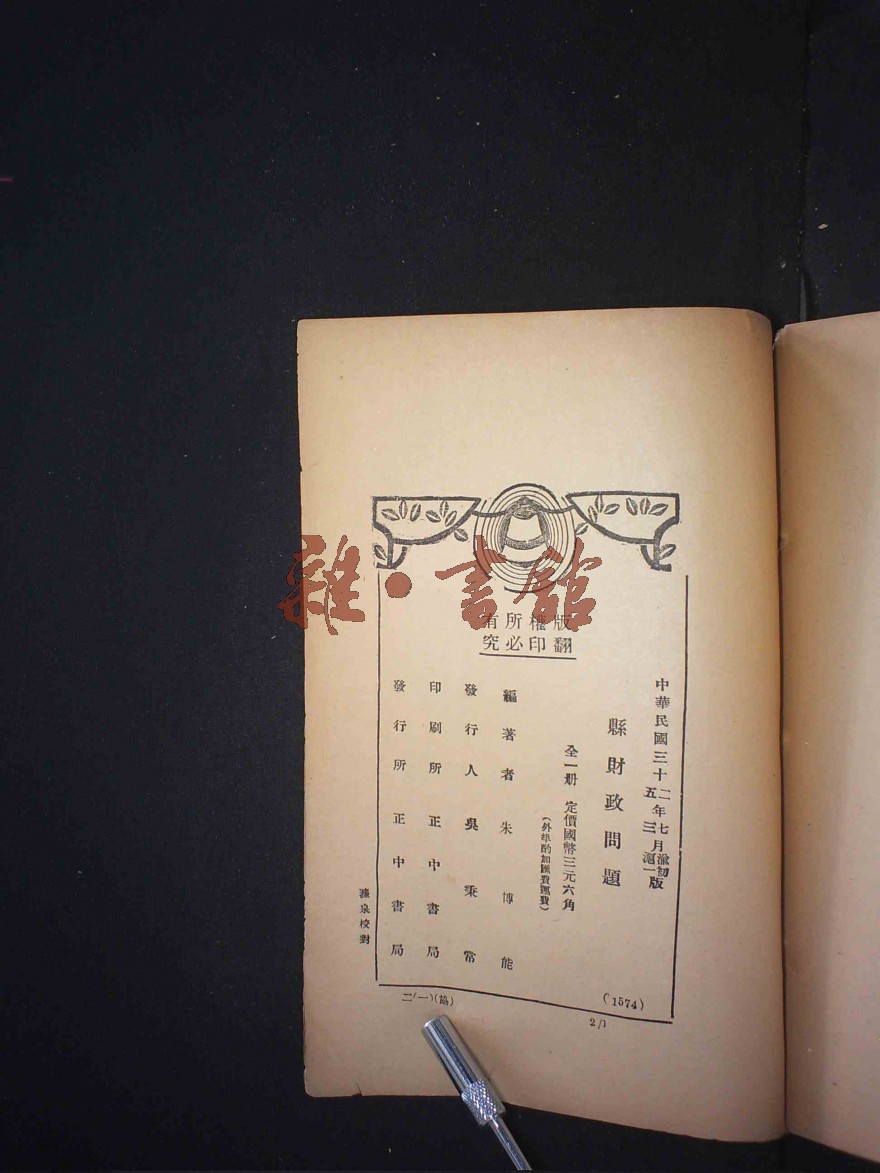 雜·書館
版權所有
翻印必究
中華民國三十二年七月渝初版
五三滬一
縣財政問題
全一册 定價國幣三元六角
(外埠酌加匯費運費)
編著者 朱博能
發行人 吳秉常
印刷所 正中書局
發行所 正中書局
泉校對
(1574)
二(一)(協)
2/1